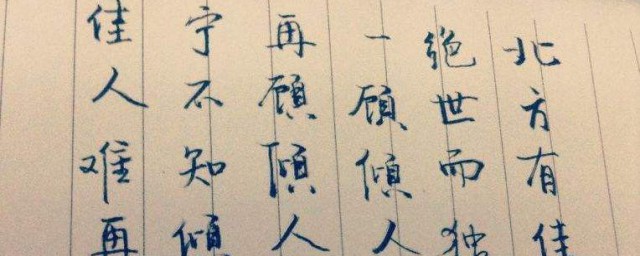 北方有佳
绝世而独
一顾倾人
再顾倾人
宁不知倾
佳人难再